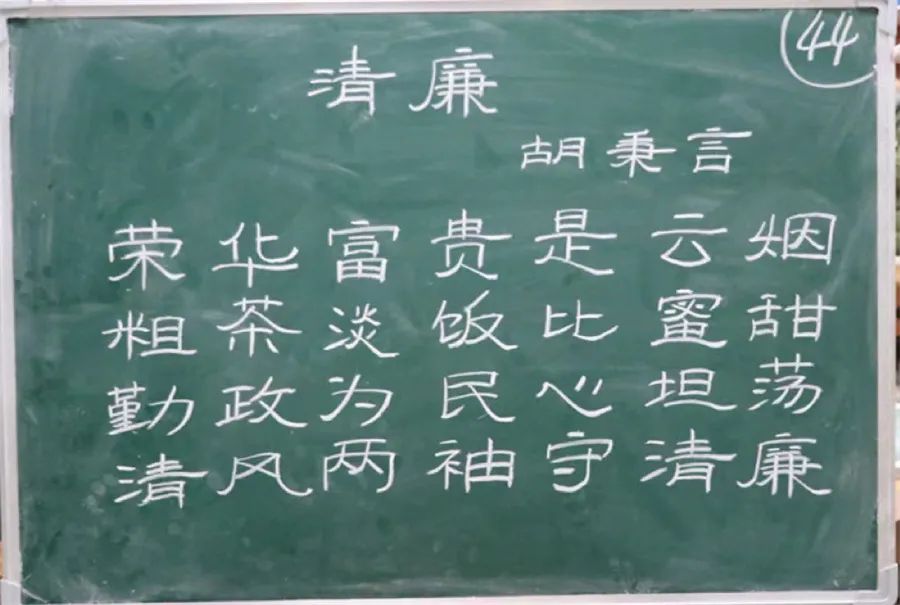 44
清廉
胡秉言
荣华富贵是云烟
粗茶淡饭比蜜甜
勤政为民心坦荡
清风两袖守清廉